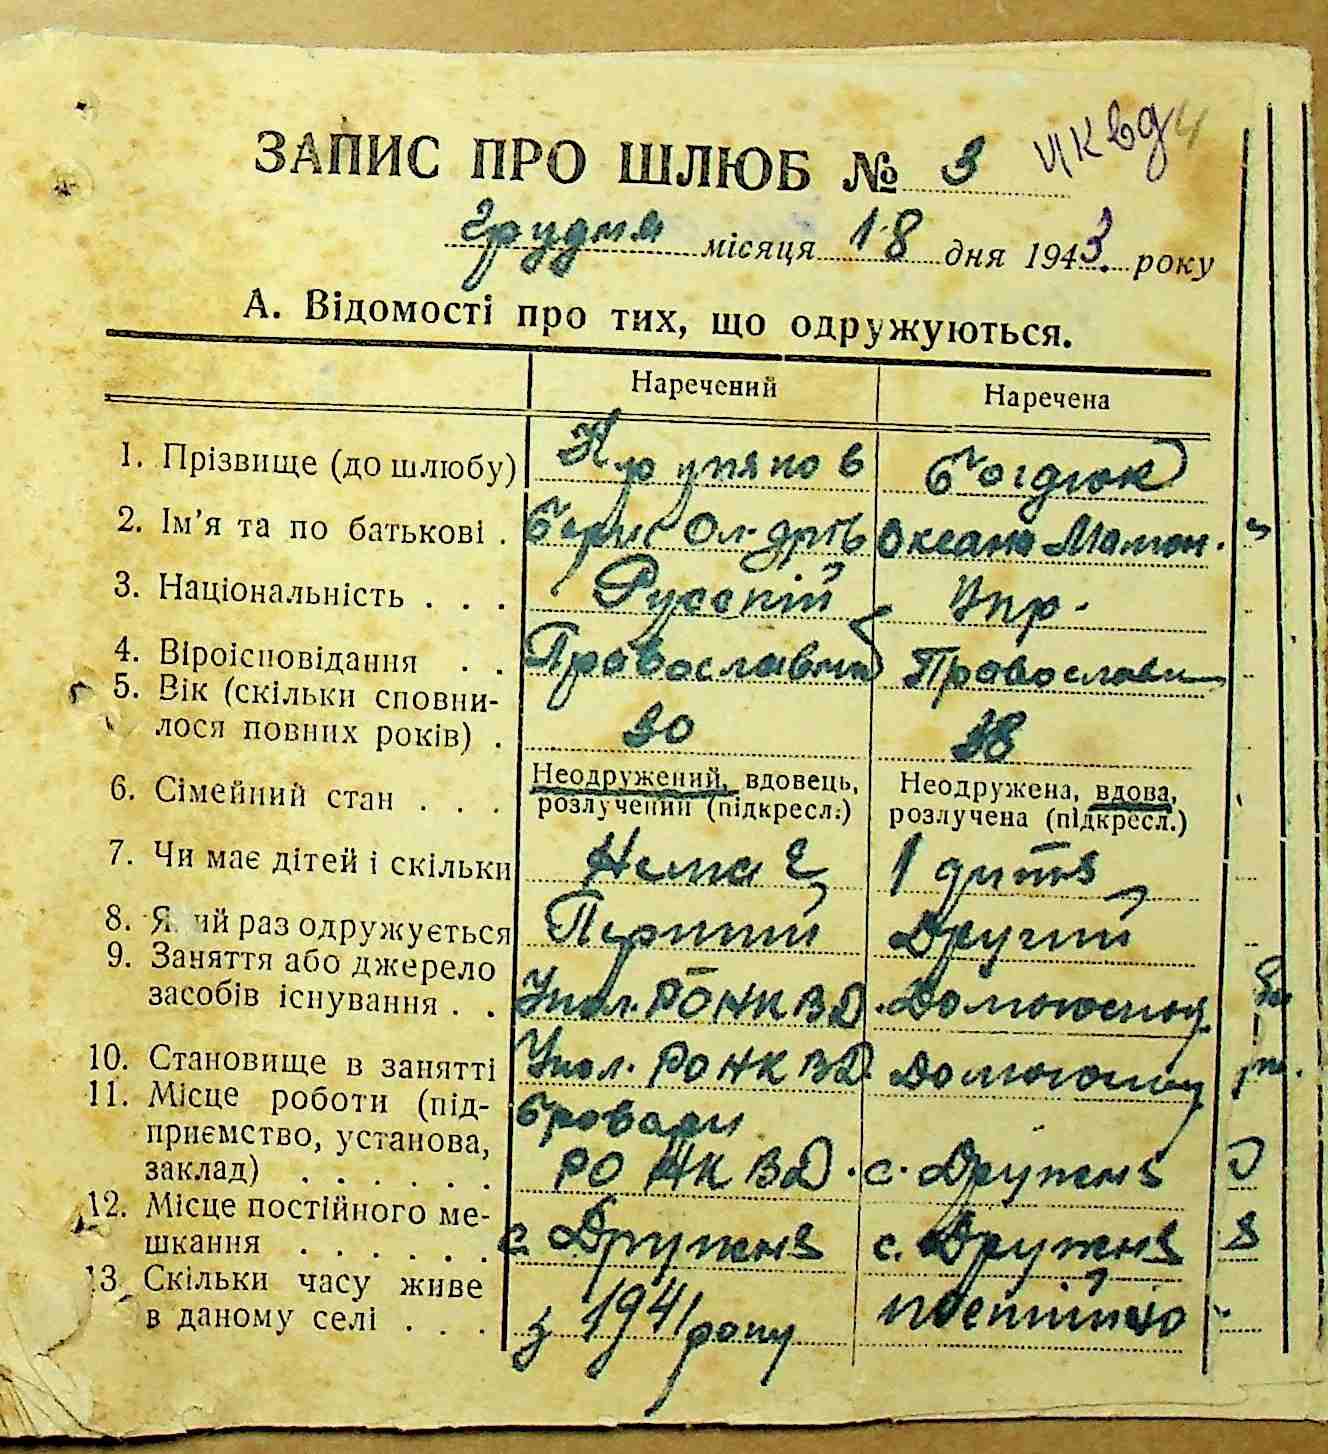 ЗАПИС ПРО ШЛЮБ № 3 НКВД 4
Грудня місяця 18 дня 1943. року
А. Відомості про тих, що одружуються.
Наречений Наречена
1. Прізвище (до шлюбу) Крупяков Богдюк
2. Ім'я та по батькові . Борис Ол-дрів Оксана Мамон.
3. Національність . . . Русский Укр.
4. Віроісповідання . . Православний Православн
5. Вік (скільки сповни-
лося повних років) . 30 38
6. Сімейний стан . . . Неодружений, вдовець, Неодружена, вдова,
розлучений (підкресл.) розлучена (підкресл.)
7. Чи має дітей і скільки Немає 1 дитя
8. Я ий раз одружується Перший Другий
9. Заняття або джерело
засобів існування . . Упол. РОНКВД. Домогоспод
10. Становище в занятті Упол. РОНКВД. Домогоспод
11. Місце роботи (під- Бровари
приємство, установа,
заклад) . . . . . . РО НКВД. с. Дружня
12. Місце постійного ме-
шкання . . . . . . с. Дружня с. Дружня
13. Скільки часу живе
в даному селі . . . з 1941 року постійно